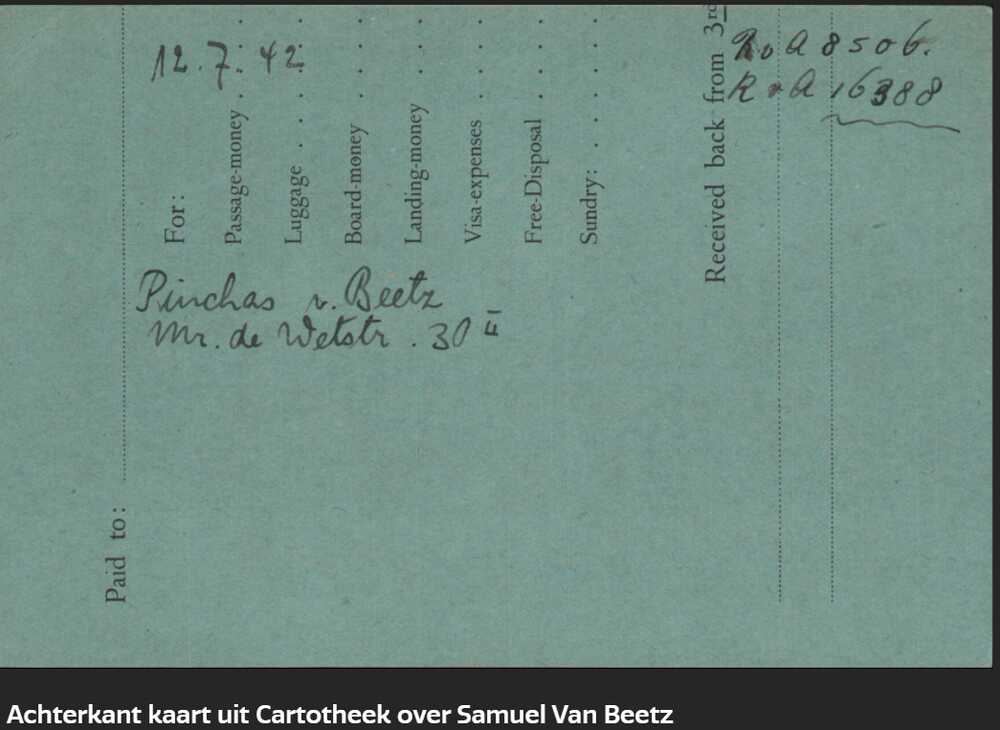 12.7.42
R v A 8506.
R v A 16388
Received back from 3rd
For:
Passage-money
Luggage
Board-money
Landing-money
Visa-expenses
Free-Disposal
Sundry:
Pinchas v. Beetz
Mr. de Wetstr. 30 II
Paid to:
Achterkant kaart uit Cartotheek over Samuel Van Beetz